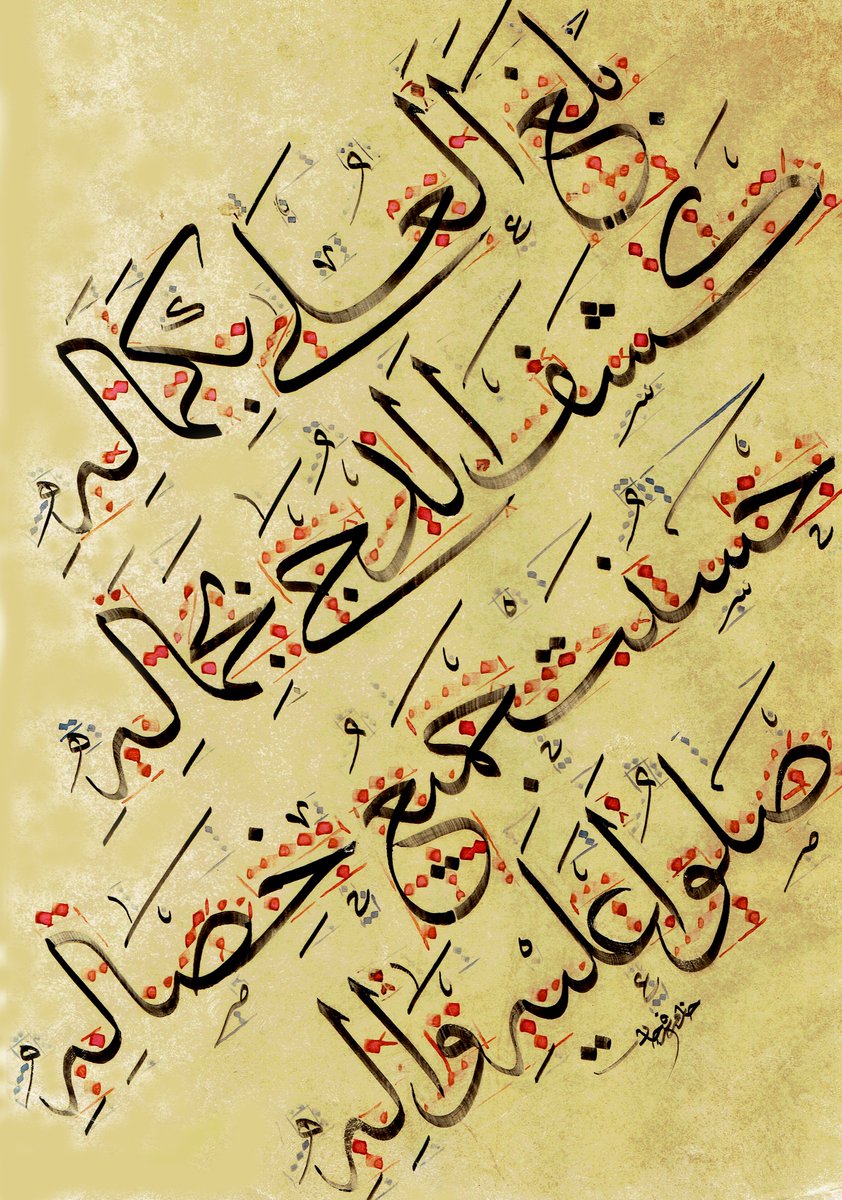 بَلَغَ الْعُلَى بِكَمَالِهِ
كَشَفَ الدُّجَى بِجَمَالِهِ
حَسُنَتْ جَمِيعُ خِصَالِهِ
صَلُّوا عَلَيْهِ وَآلِهِ